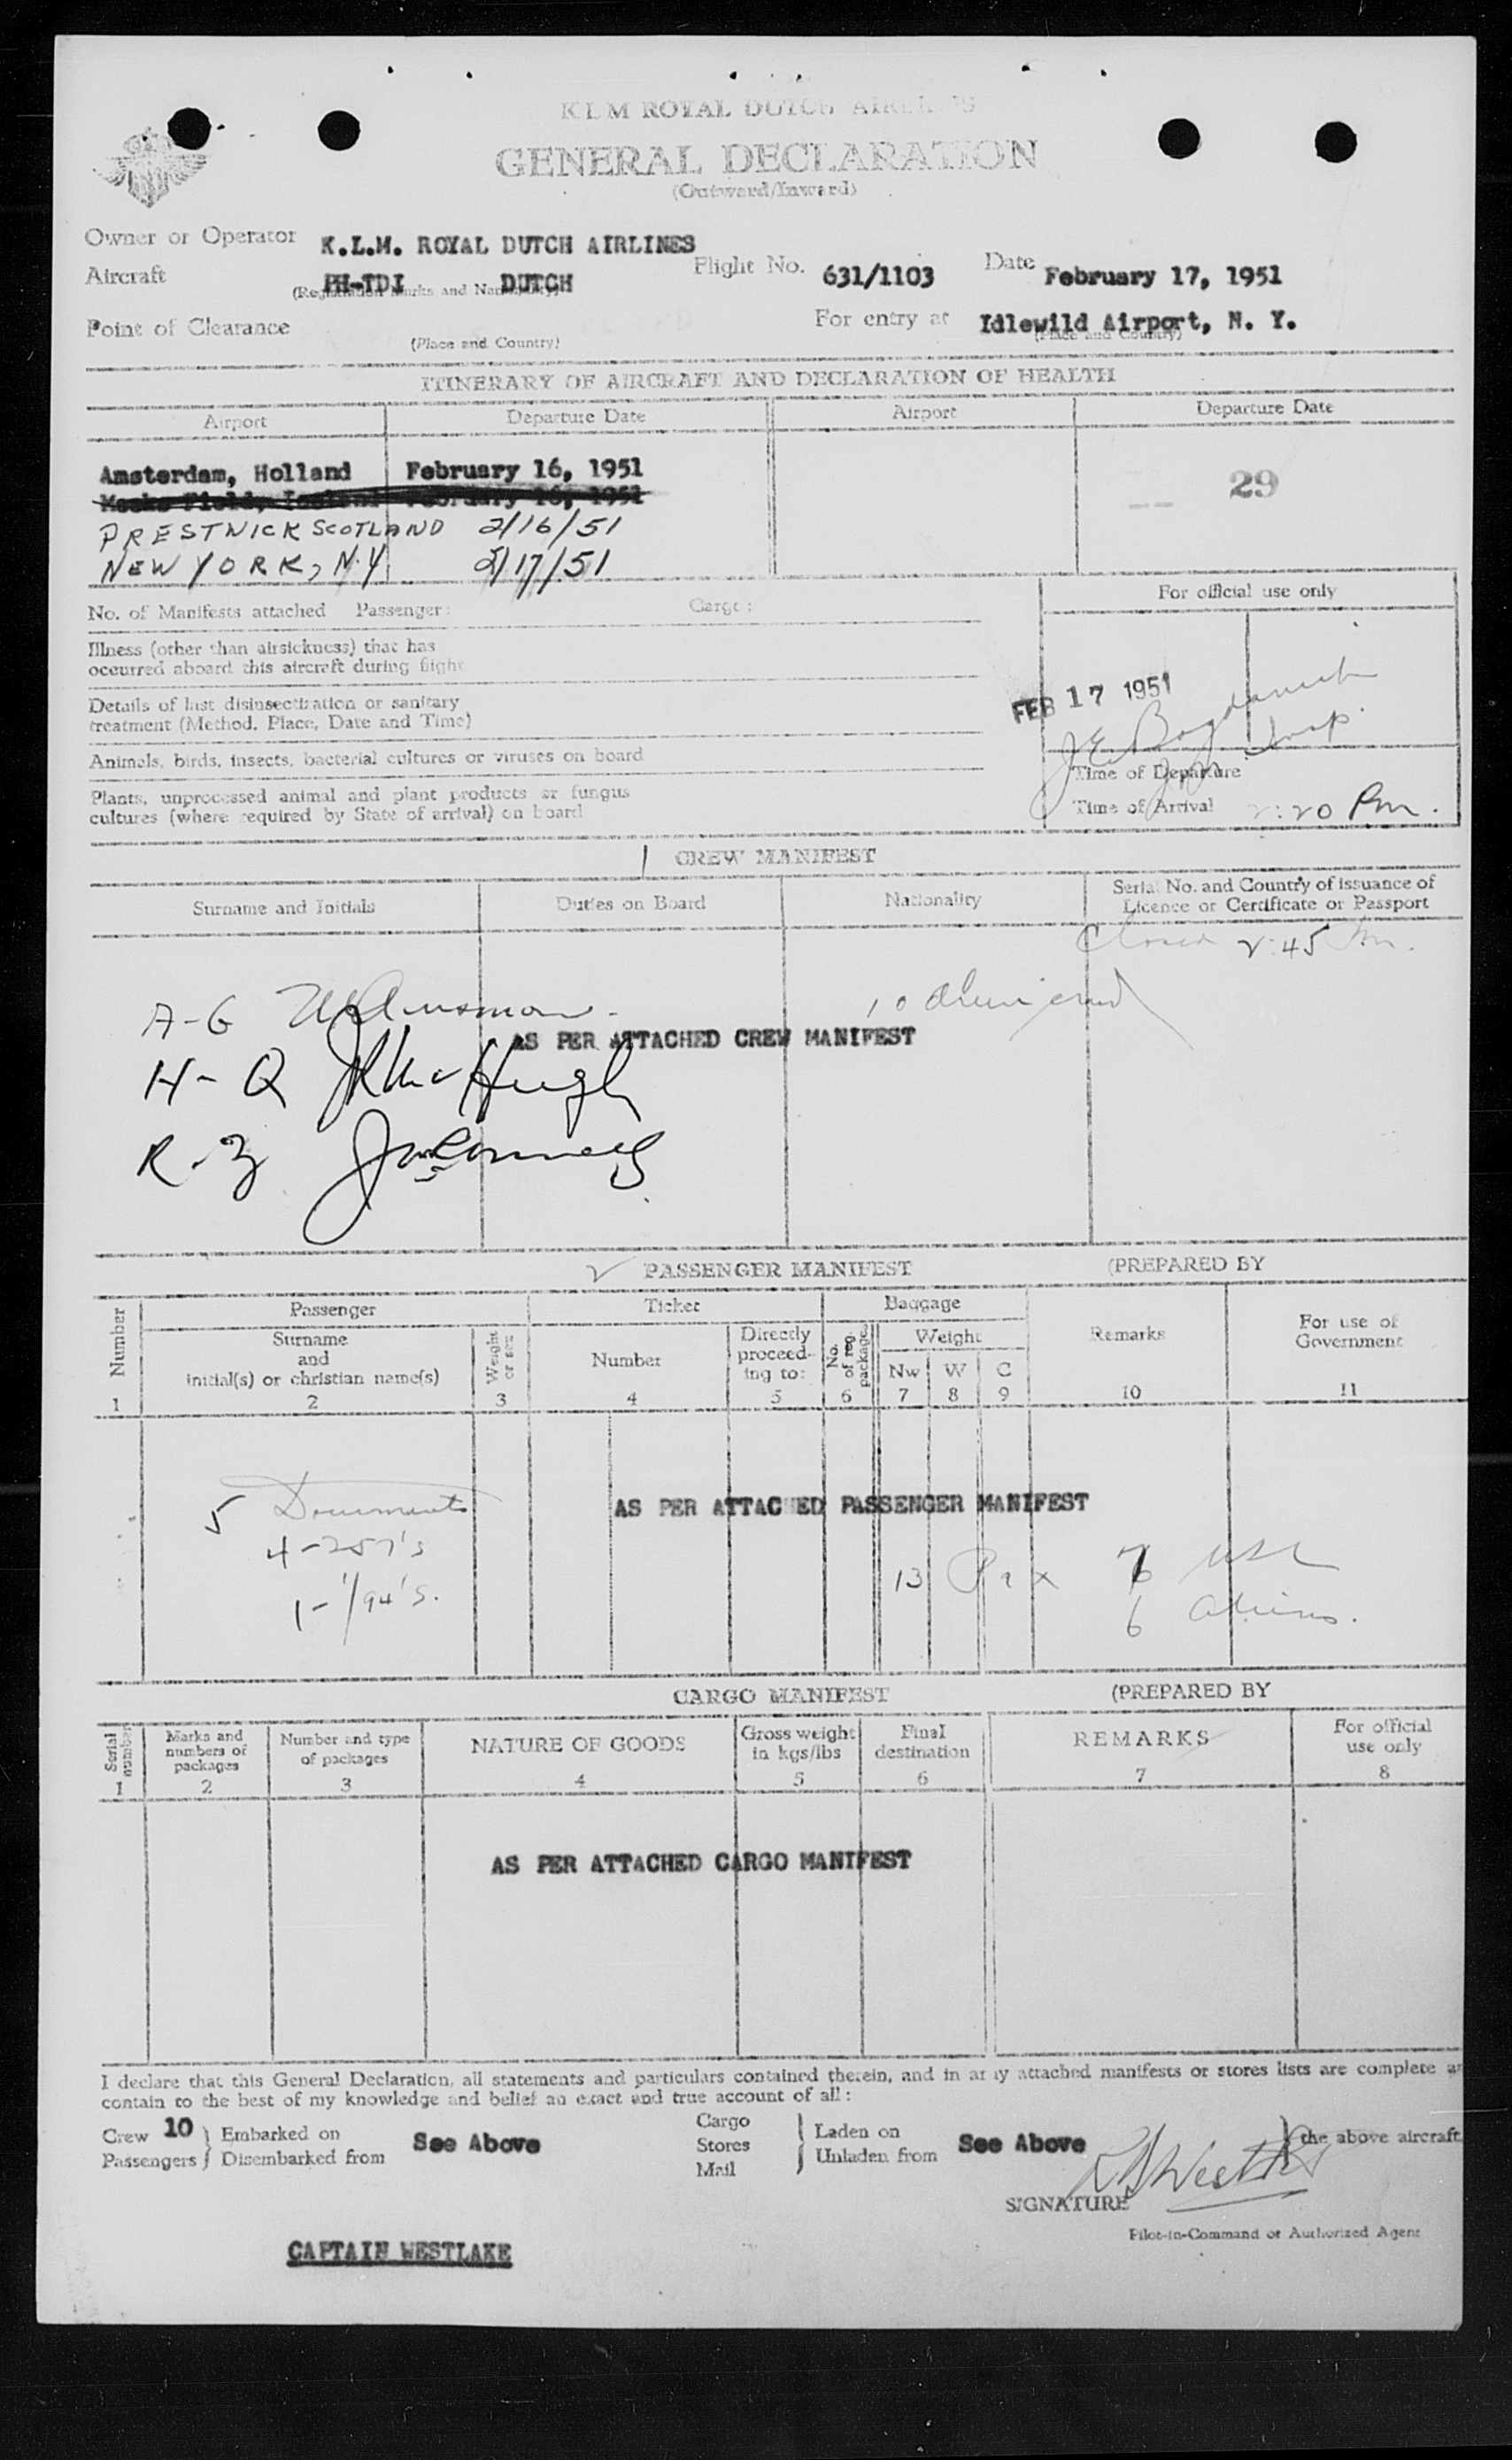 KLM ROYAL DUTCH AIRLINES
GENERAL DECLARATION
(Outward/Inward)
Owner or Operator K.L.M. ROYAL DUTCH AIRLINES
Aircraft PH-TDI DUTCH Flight No. 631/1103 Date February 17, 1951
(Registration Marks and Nationality)
Point of Clearance For entry at Idlewild Airport, N. Y.
(Place and Country) (Place and Country)
ITINERARY OF AIRCRAFT AND DECLARATION OF HEALTH
Airport Departure Date Airport Departure Date
Amsterdam, Holland February 16, 1951 29
Meeks Field, Iceland February 16, 1951
PRESTWICK SCOTLAND 2/16/51
NEW YORK, N.Y 2/17/51
No. of Manifests attached Passenger: Cargo: For official use only
Illness (other than airsickness) that has
occurred aboard this aircraft during flight
Details of last disinsectization or sanitary
treatment (Method, Place, Date and Time)
FEB 17 1951
Animals, birds, insects, bacterial cultures or viruses on board
Time of Departure
Plants, unprocessed animal and plant products or fungus
cultures (where required by State of arrival) on board
Time of Arrival 2:20 Pm.
1 CREW MANIFEST
Surname and Initials Duties on Board Nationality Serial No. and Country of issuance of
Licence or Certificate or Passport
Closed 2:45 Pm.
A-G
10
AS PER ATTACHED CREW MANIFEST
H-Q McHugh
R-Z
2 PASSENGER MANIFEST (PREPARED BY
Number Passenger Ticket Baggage Remarks For use of Government
Surname
and
initial(s) or christian name(s)
Weight or sex Number Directly proceed-ing to: No. of reg. package Weight
Nw W C
1 2 3 4 5 6 7 8 9 10 11
5 Documents
AS PER ATTACHED PASSENGER MANIFEST
4-257's
13 Pax 7 USC
1-I/94's.
6 Aliens.
CARGO MANIFEST (PREPARED BY
Serial number Marks and numbers of packages Number and type of packages NATURE OF GOODS Gross weight in kgs/lbs Final destination REMARKS For official use only
1 2 3 4 5 6 7 8
AS PER ATTACHED CARGO MANIFEST
I declare that this General Declaration, all statements and particulars contained therein, and in any attached manifests or stores lists are complete a
contain to the best of my knowledge and belief an exact and true account of all:
Crew 10 Embarked on See Above Cargo Laden on See Above the above aircraft
Passengers Disembarked from Stores Unladen from
Mail
SIGNATURE
Pilot-in-Command or Authorized Agent
CAPTAIN WESTLAKE